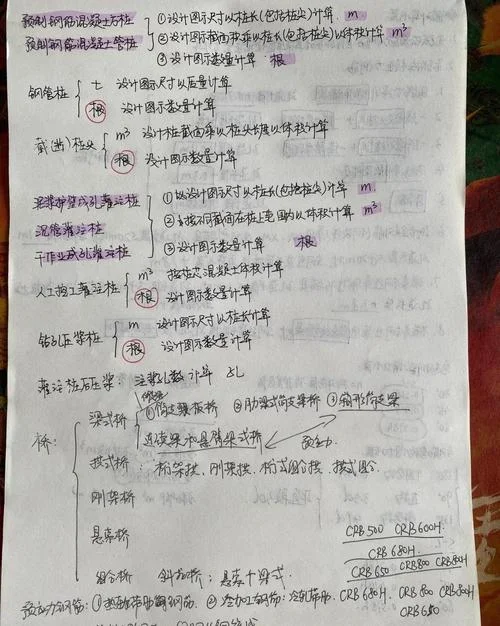 预制钢筋混凝土方桩 ①设计图示尺寸以桩长(包括桩尖)计算. m
预制钢筋混凝土管桩 ②设计图示截面积乘以桩长(包括桩尖)以体积计算 m³
③设计图示数量计算: 根
钢管桩 t 设计图示尺寸以质量计算
根 设计图示数量计算
截(凿)桩头 m³ 设计桩截面乘以桩头长度以体积计算
根 设计图示数量计算
泥浆护壁成孔灌注桩 ①以设计图示尺寸以桩长(包括桩尖)计算 m
沉管灌注桩 ②按不同截面在桩上范围内以体积计算 m³
干作业成孔灌注桩 ③设计图示数量计算 根
人工挖孔灌注桩 m³ 按桩芯混凝土体积计算
根 设计图示数量计算
钻孔压浆桩 m 设计图示尺寸以桩长计算
根 设计图示数量计算
灌注桩后压浆: 注浆孔数计算
桥: 梁式桥 ①简支板桥 ②肋梁式简支梁桥 ③箱形简支梁
连续梁 悬臂梁式桥 预应力.
拱式桥: 桁架拱, 刚架拱, 桁式组合拱, 拱式组合.
刚架桥
悬索桥
组合桥 斜拉桥: 悬索+梁式.
CRB500 CRB600H.
CRB680H.
CRB650 CRB800 CRB800H
预应力钢筋: ①热轧带肋钢筋 ②冷加工钢筋: 冷轧带肋. CRB680H, CRB800 CRB800H
CRB650